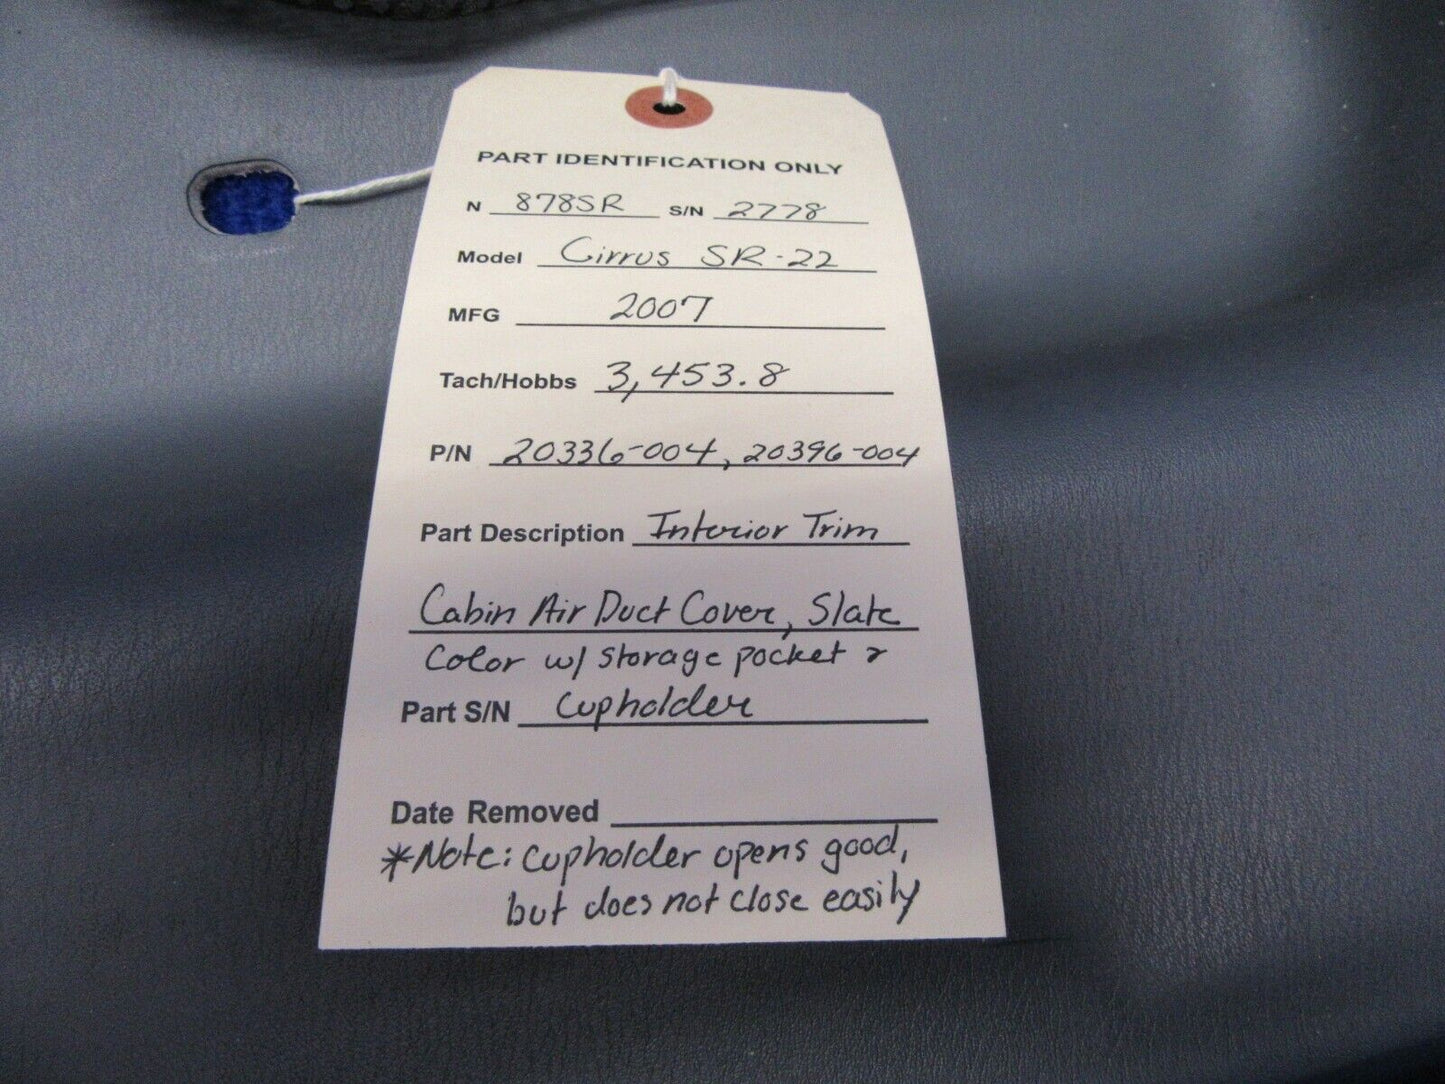 PART IDENTIFICATION ONLY
N 878SR S/N 2778
Model Cirrus SR-22
MFG 2007
Tach/Hobbs 3,453.8
P/N 20336-004, 20396-004
Part Description Interior Trim
Cabin Air Duct Cover, Slate
Color w/ storage pocket &
Part S/N Cupholder
Date Removed
*Note: Cupholder opens good,
but does not close easily